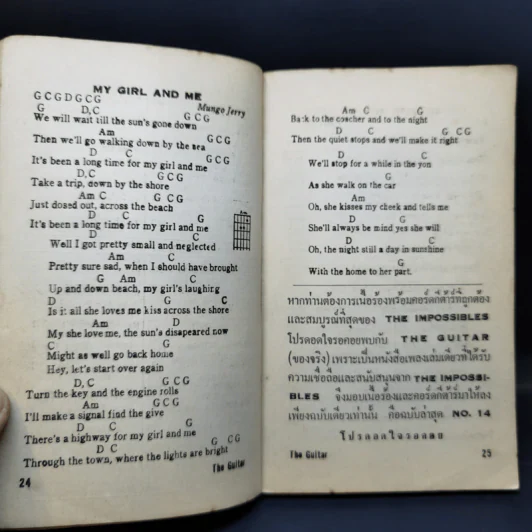 MY GIRL AND ME
Mungo Jerry
G C G D G C G
G D,C G C G
We will wait till the sun's gone down
Am G C G
Then we'll go walking down by the sea
D C G C G
It's been a long time for my girl and me
D,C G C G
Take a trip, down by the shore
Am C G C G
Just dosed out, across the beach
D C G
It's been a long time for my girl and me
D C
Well I got pretty small and neglected
C
Pretty sure sad, when I should have brought
G Am C
Up and down beach, my girl's laughing
D G C
Is it all she loves me kiss across the shore
Am D
My she love me, the sun's disapeared now
C G
Might as well go back home
Hey, let's start over again
D,C G C G
Turn the key and the engine rolls
Am G C G
I'll make a signal find the give
D C G
There's a highway for my girl and me
D C G CG
Through the town, where the lights are bright
The Guitar
24
Am C G
Back to the coscher and to the night
D C G CG
Then the quiet stops and we'll make it right
D C
We'll stop for a while in the yon
G
As she walk on the car
Am C
Oh, she kisses my cheek and tells me
D G
She'll always be mind yes she will
D C
Oh, the night still a day in sunshine
G
With the home to her part.
หากท่านต้องการเนื้อร้องพร้อมคอร์ดกีต้าร์ที่ถูกต้อง
และสมบูรณ์ที่สุดของ THE IMPOSSIBLES
โปรดอดใจรอคอยพบกับ THE GUITAR
(ของจริง) เพราะเป็นหนังสือเพลงเล่มเดียวที่ได้รับ
ความเชื่อถือและสนับสนุนจาก THE IMPOSSI-
BLES จึงมอบเนื้อร้องและคอร์ดกีต้าร์มาให้ลง
เพียงฉบับเดียวเท่านั้น คือฉบับล่าสุด NO. 14
โปรดอดใจรอคอย
The Guitar 25